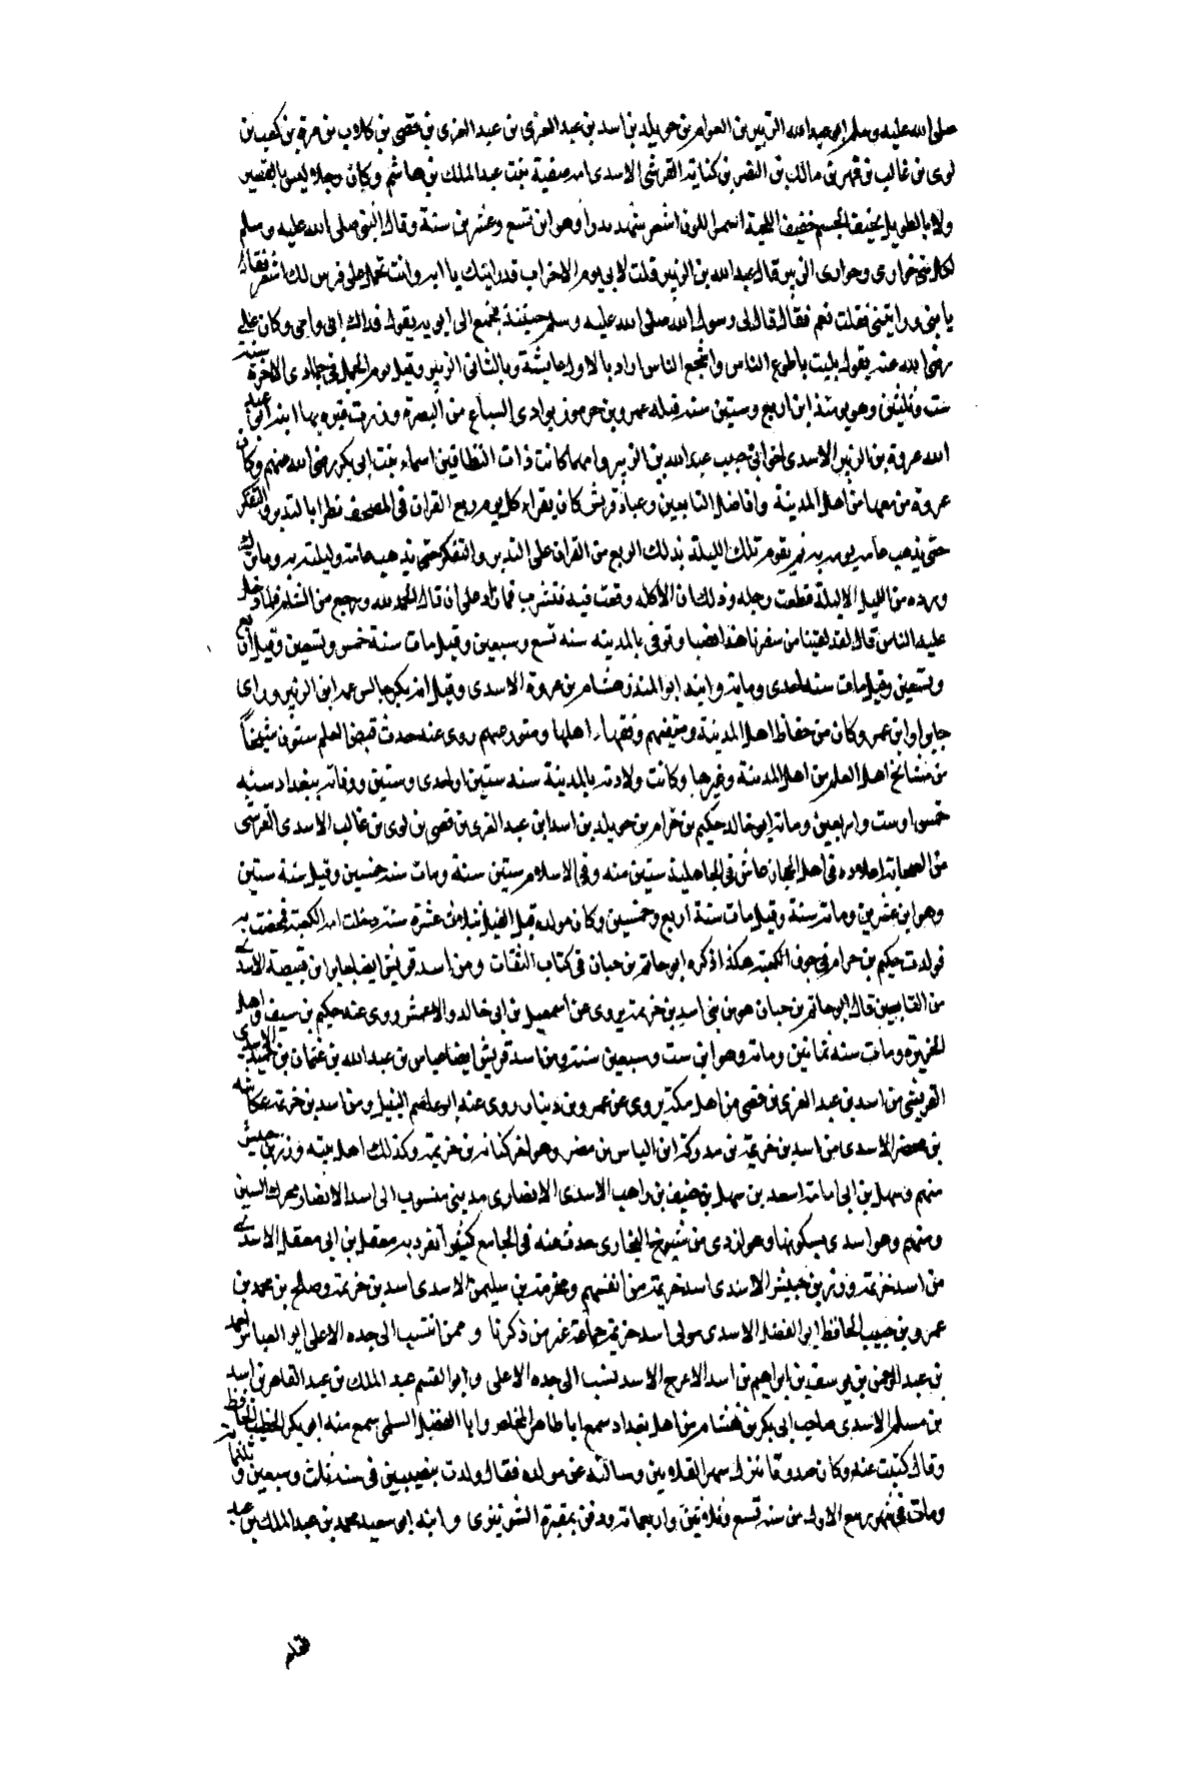 صلى الله عليه وسلم ابو عبد الله الزبير بن العوام بن خويلد بن اسد بن عبد العزى بن عبد العزى بن قصى بن كلاب بن مرة بن كعب بن
لوى بن غالب بن فهر بن مالك بن النضر بن كنانة القرشى الاسدى امه صفية بنت عبد الملك بن هاشم وكان رجلا ليس بالقصير
ولا بالطويل نحيف الجسم خفيف اللحية اسمر اللون اشعر شهد بدرا وهو ابن تسع وعشرين سنة وقال النبى صلى الله عليه وسلم
لكل نبى حوارى وحوارى الزبير قال عبد الله بن الزبير قلت لابى يوم الاحزاب قد رايتك يا ابه وانت تحمل على فرس لك اشقر فقال
يا بنى ورايتنى فقلت نعم فقال قال لى رسول الله صلى الله عليه وسلم حينئذ يجمع الى ابويه يقول فداك ابى وامى وكان على
رضى الله عنه يقول بليت باطوع الناس واشجع الناس اراد بالاول عايشة وبالثانى الزبير وقتل يوم الجمل فى جمادى الاخرة سنة
ست وثلثين وهو يومئذ ابن اربع وستين سنة قتله عمرو بن جرموز بوادى السباع من البصرة وزرت قبره بها ابنه ابو عبد
الله عروة بن الزبير الاسدى اخو ابى حبيب عبد الله بن الزبير وامهما كانت ذات النطاقين اسماء بنت ابى بكر رضى الله عنهم وكان
عروة من فقهاء اهل المدينة وافاضل التابعين وعباد قريش كان يقراء كل يوم ربع القران فى المصحف نظرا بالتدبر والتفكر
حتى يذهب عامة يومه به ثم يقوم تلك الليلة بذلك الربع من القران على التدبر والتفكر حتى يذهب عامة وليلته به وما ترك
ورده من الليل الا ليلة قطعت رجله وذلك ان الاكله وقعت فيه فنشرت فما زاد على ان قال الحمد لله ورجع من الشام فلما دخل
عليه الناس قال لقد لقينا من سفرنا هذا نصبا وتوفى بالمدينه سنه تسع وسبعين وقيل مات سنة خمس وتسعين وقيل اربع
وتسعين وقيل مات سنه احدى وماية وابنه ابو المنذر هشام بن عروة الاسدى وقيل ابو بكر جالس عمه ابن الزبير وراى
جابرا وابن عمر وكان من حفاظ اهل المدينة ومتقنهم وفقهاء اهلها ومتورعهم روى عنه حدث قبض العلم ستون شيخا
من مشائخ اهل العلم من اهل المدينة وغيرها وكانت ولادته بالمدينة سنه ستين او احدى وستين ووفاته ببغداد سنه
خمس او ست واربعين ومايه ابو خالد حكيم بن حزام بن خويلد بن اسد ابن عبد العزى بن قصى بن لوى بن غالب الاسدى القرشى
من الصحابة اعداده فى اهل الحجاز عاش فى الجاهلية ستين سنه وفى الاسلام ستين سنة ومات سنه خمسين وقيل سنة ستين
وهو ابن عشرين ومائة سنة وقيل مات سنة اربع وخمسين وكان مولده قبل الفيل بثلاث عشرة سنة دخلت امه الكعبة فمخضت به
فولدت حكيم بن حزام فى جوف الكعبة هكذا ذكره ابو حاتم بن حبان فى كتاب الثقات ومن اسد قريش ايضا جابر ابن قبيصة الاسدى
من التابعين قال ابو حاتم بن حبان هو من بنى اسد بن خزيمة يروى عن اسمعيل بن ابى خالد والاعمش روى عنه حكيم بن سيف واهل
الجزيرة ومات سنه ثمانين ومائة وهو ابن ست وسبعين سنة ومن اسد قريش ايضا عباس بن عبد الله بن عثمان بن حميد الاسدى
القريشى من اسد بن عبد العزى بن قصى من اهل مكة يروى عن عمرو بن دينار روى عنه ابو عاصم النبيل ومن اسد بن خزيمة عكاشه
بن محصن الاسدى من اسد بن خزيمة بن مدركة ابن الياس بن مضر وهو اخو كنانه بن خزيمة وكذلك اهل بيته وزر بن حبيش
منهم وسهل بن ابى امامة اسعد بن سهل بن حنيف بن راهب الاسدى الانصارى مدينى منسوب الى اسد الانصار محرك السين
ومنهم وهو اسدى بسكونها وهو ازدى من شيوخ البخارى حدث عنه فى الجامع كثيرا تفرد به معقل بن ابى معقل الاسدى
من اسد خزيمة وزر بن حبيش الاسدى اسد خزيمة من انفسهم ومخرمة بن سليمن الاسدى اسد بن خزيمة وصالح بن محمد بن
عمرو بن حبيب الحافظ ابو الفضل الاسدى مولى اسد خزيمة جماعة غير من ذكرنا وممن انتسب الى جده الاعلى ابو العباس احمد
بن عبد الرحمن بن يوسف بن ابراهيم بن اسد الاعرج الاسد نسب الى جده الاعلى وابو القسم عبد الملك بن عبد القاهر بن اسد
بن مسلم الاسدى صاحب ابى بكر بن هشام من اهل بغداد سمع ابا طاهر المخلص وابا الفضل السلمى سمع منه ابو بكر الخطيب الحافظ
وقال كتبت عنه وكان صدوقا ينزل سهر القلابين وسالته عن مولده فقال ولدت بنصيبين فى سنه ثلث وسبعين وثلثمائة
ومات فى شهر ربيع الاول من سنة تسع وثلاثين واربعماية ودفن بمقبرة الشونيزى وابنه ابو سعيد محمد بن عبد الملك بن عبد